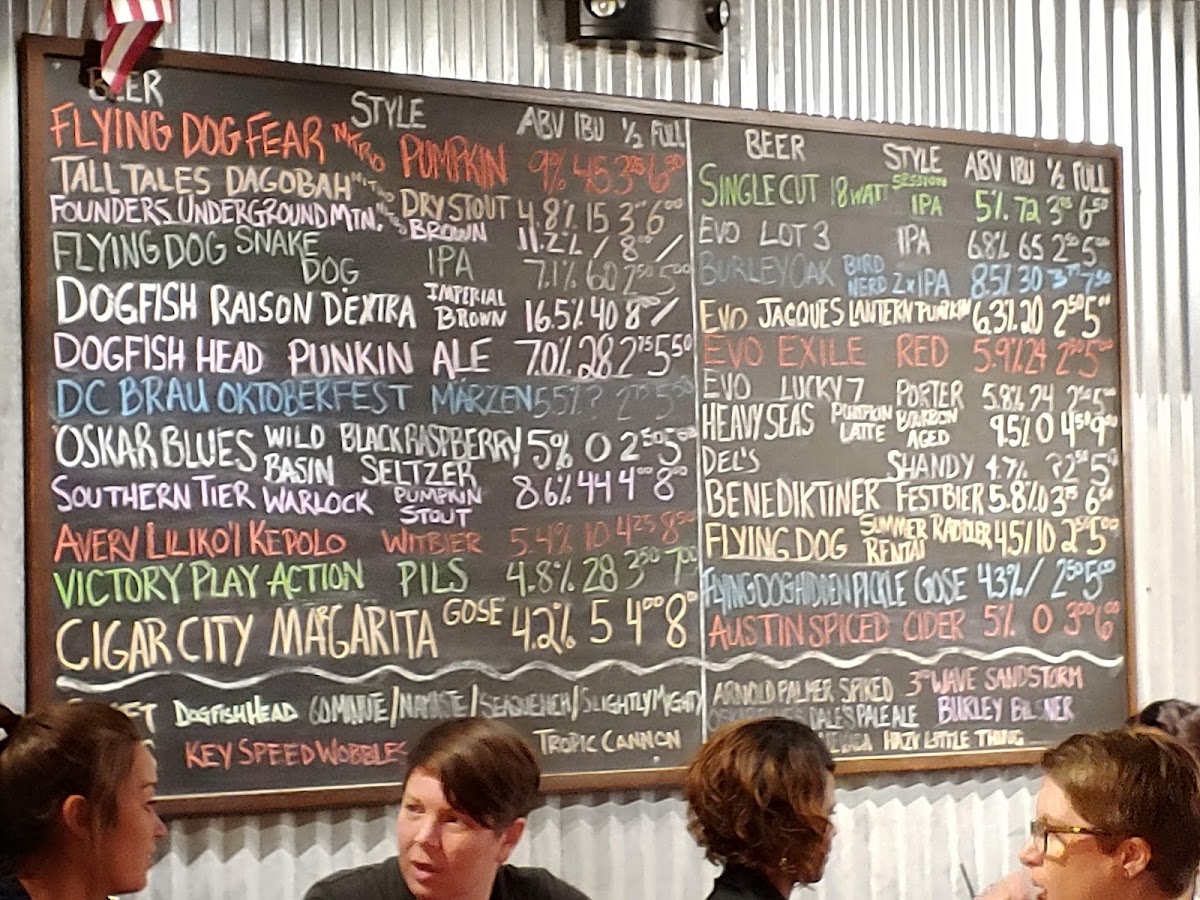 BEER STYLE ABV IBU ½ FULL
FLYING DOG FEAR NITRO PUMPKIN 9% 45 3²⁵ 6⁵⁰
TALL TALES DAGOBAH NITRO DRY STOUT 4.8% 15 3⁰⁰ 6⁰⁰
FOUNDERS UNDERGROUND MTN. BROWN 11.2% / 8⁰⁰ /
FLYING DOG SNAKE DOG IPA 7.1% 60 2⁵⁰ 5⁰⁰
DOGFISH RAISON D'EXTRA IMPERIAL BROWN 16.5% 40 8⁰⁰ /
DOGFISH HEAD PUNKIN ALE 7.0% 28 2⁷⁵ 5⁵⁰
DC BRAU OKTOBERFEST MÄRZEN 5.5% ? 2⁷⁵ 5⁵⁰
OSKAR BLUES WILD BASIN BLACK RASPBERRY SELTZER 5% 0 2⁵⁰ 5⁰⁰
SOUTHERN TIER WARLOCK PUMPKIN STOUT 8.6% 44 4⁰⁰ 8⁰⁰
AVERY LILIKO'I KEPOLO WITBIER 5.4% 10 4²⁵ 8⁵⁰
VICTORY PLAY ACTION PILS 4.8% 28 3⁵⁰ 7⁰⁰
CIGAR CITY MARGARITA GOSE 4.2% 5 4⁰⁰ 8⁰⁰
DOGFISH HEAD 60 MINUTE/NAMASTE/SEAQUENCH/SLIGHTLY MIGHTY
KEY SPEED WOBBLES TROPIC CANNON
BEER STYLE ABV IBU ½ FULL
SINGLECUT 18 WATT SESSION IPA 5% 72 3²⁵ 6⁵⁰
EVO LOT 3 IPA 6.8% 65 2⁵⁰ 5⁰⁰
BURLEY OAK BIRD NERD 2x IPA 8.5% 30 3⁷⁵ 7⁵⁰
EVO JACQUES LANTERN PUMPKIN 6.3% 20 2⁵⁰ 5⁰⁰
EVO EXILE RED 5.9% 24 2⁵⁰ 5⁰⁰
EVO LUCKY 7 PORTER 5.8% 24 2⁵⁰ 5⁰⁰
HEAVY SEAS PUMPKIN LATTE BOURBON AGED 9.5% 0 4⁵⁰ 9⁰⁰
DEL'S SHANDY 4.7% ? 2⁵⁰ 5⁰⁰
BENEDIKTINER FESTBIER 5.8% 0 3²⁵ 6⁵⁰
FLYING DOG SUMMER RENTAL RADDLER 4.5 / 10 2⁵⁰ 5⁰⁰
FLYING DOG HIDDEN PICKLE GOSE 4.3% / 2⁵⁰ 5⁰⁰
AUSTIN SPICED CIDER 5% 0 3⁰⁰ 6⁰⁰
ARNOLD PALMER SPIKED 3RD WAVE SANDSTORM
DALES PALE ALE BURLEY BILSNER
HAZY LITTLE THING